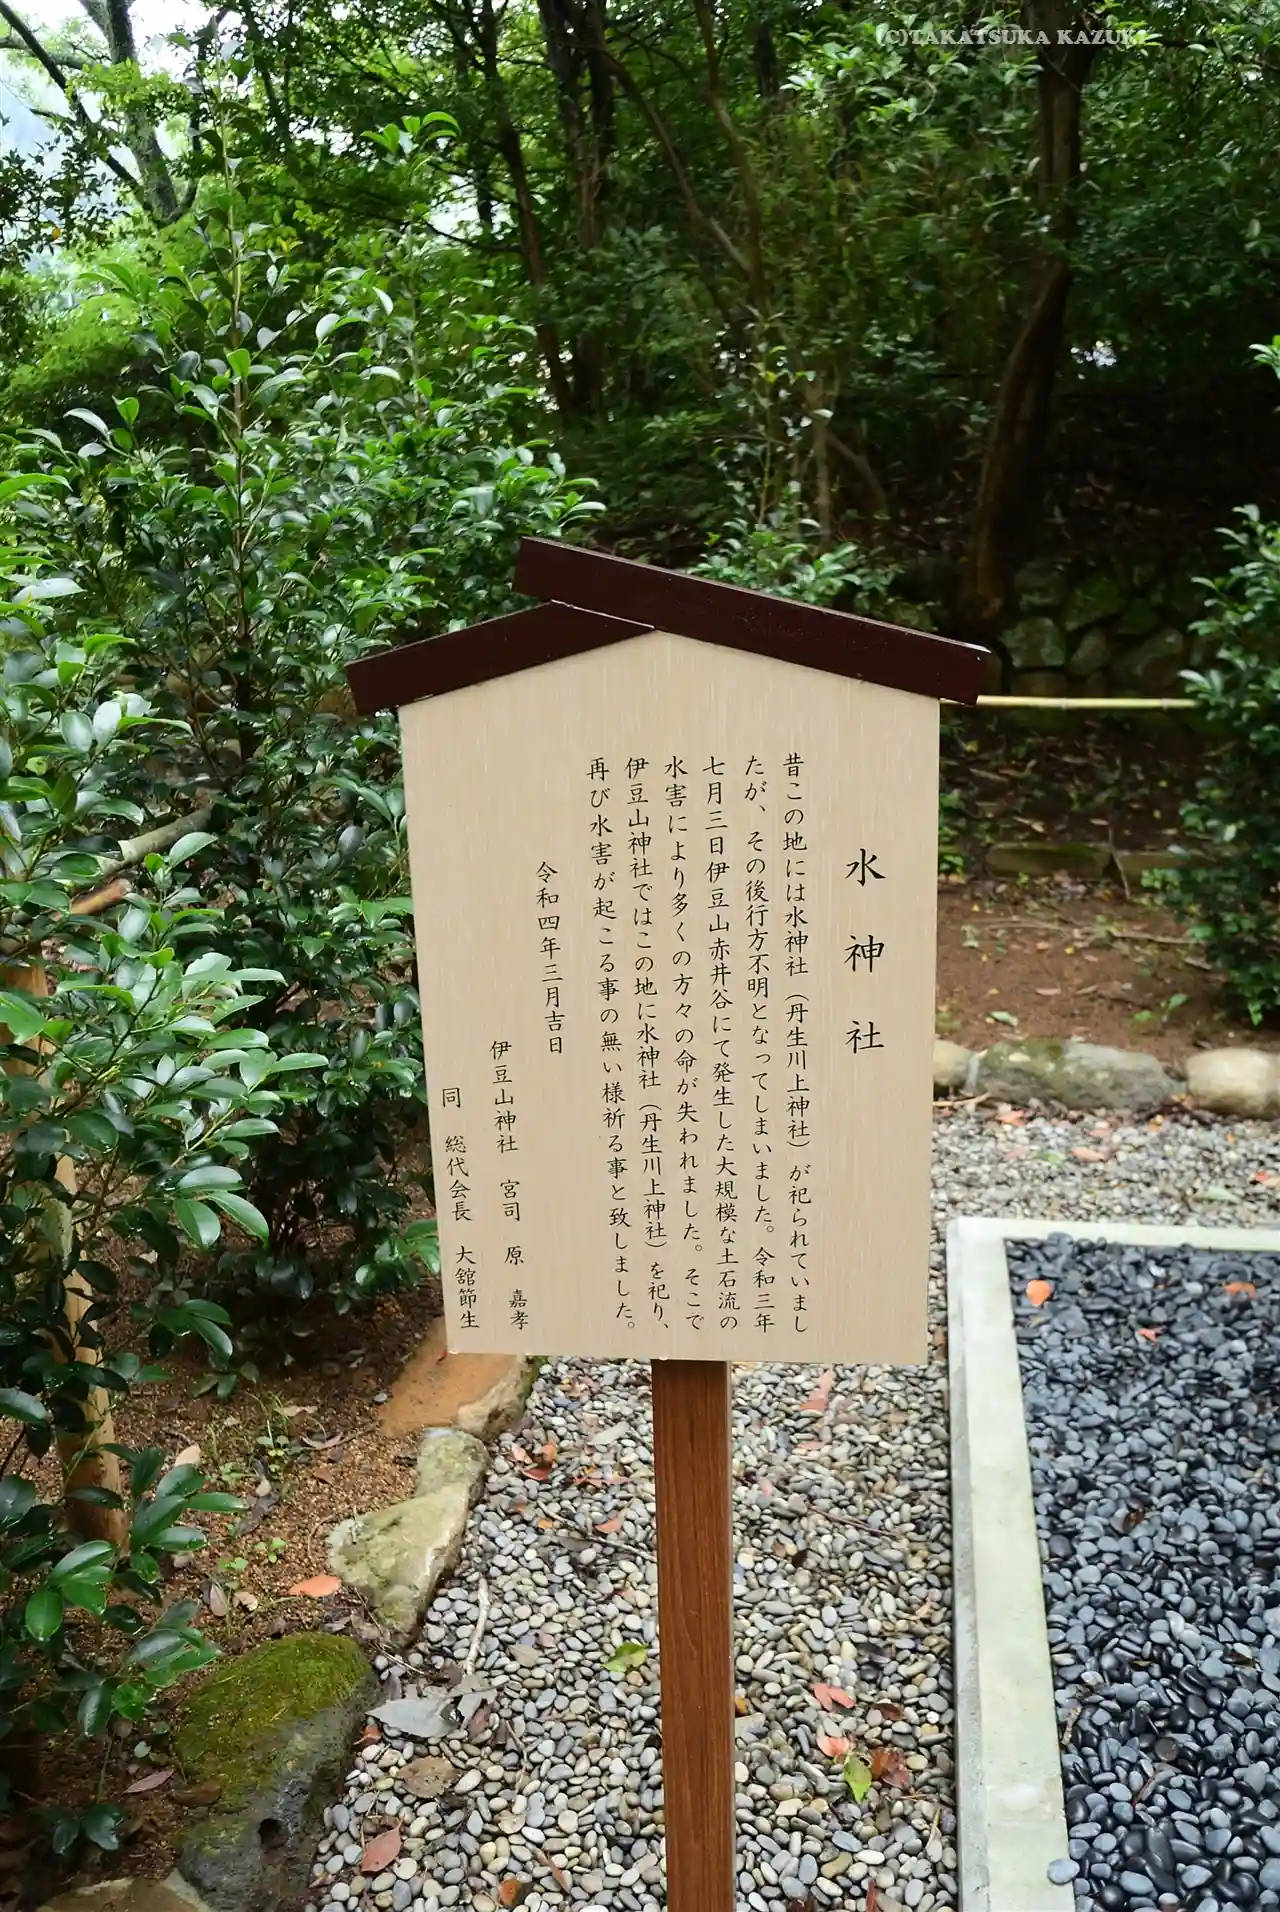 (C)TAKATSUKA KAZUKI
水神社
昔この地には水神社（丹生川上神社）が祀られていまし
たが、その後行方不明となってしまいました。令和三年
七月三日伊豆山赤井谷にて発生した大規模な土石流の
水害により多くの方々の命が失われました。そこで
伊豆山神社ではこの地に水神社（丹生川上神社）を祀り、
再び水害が起こる事の無い様祈る事と致しました。
令和四年三月吉日
伊豆山神社 宮司 原 嘉孝
同 総代会長 大舘節生